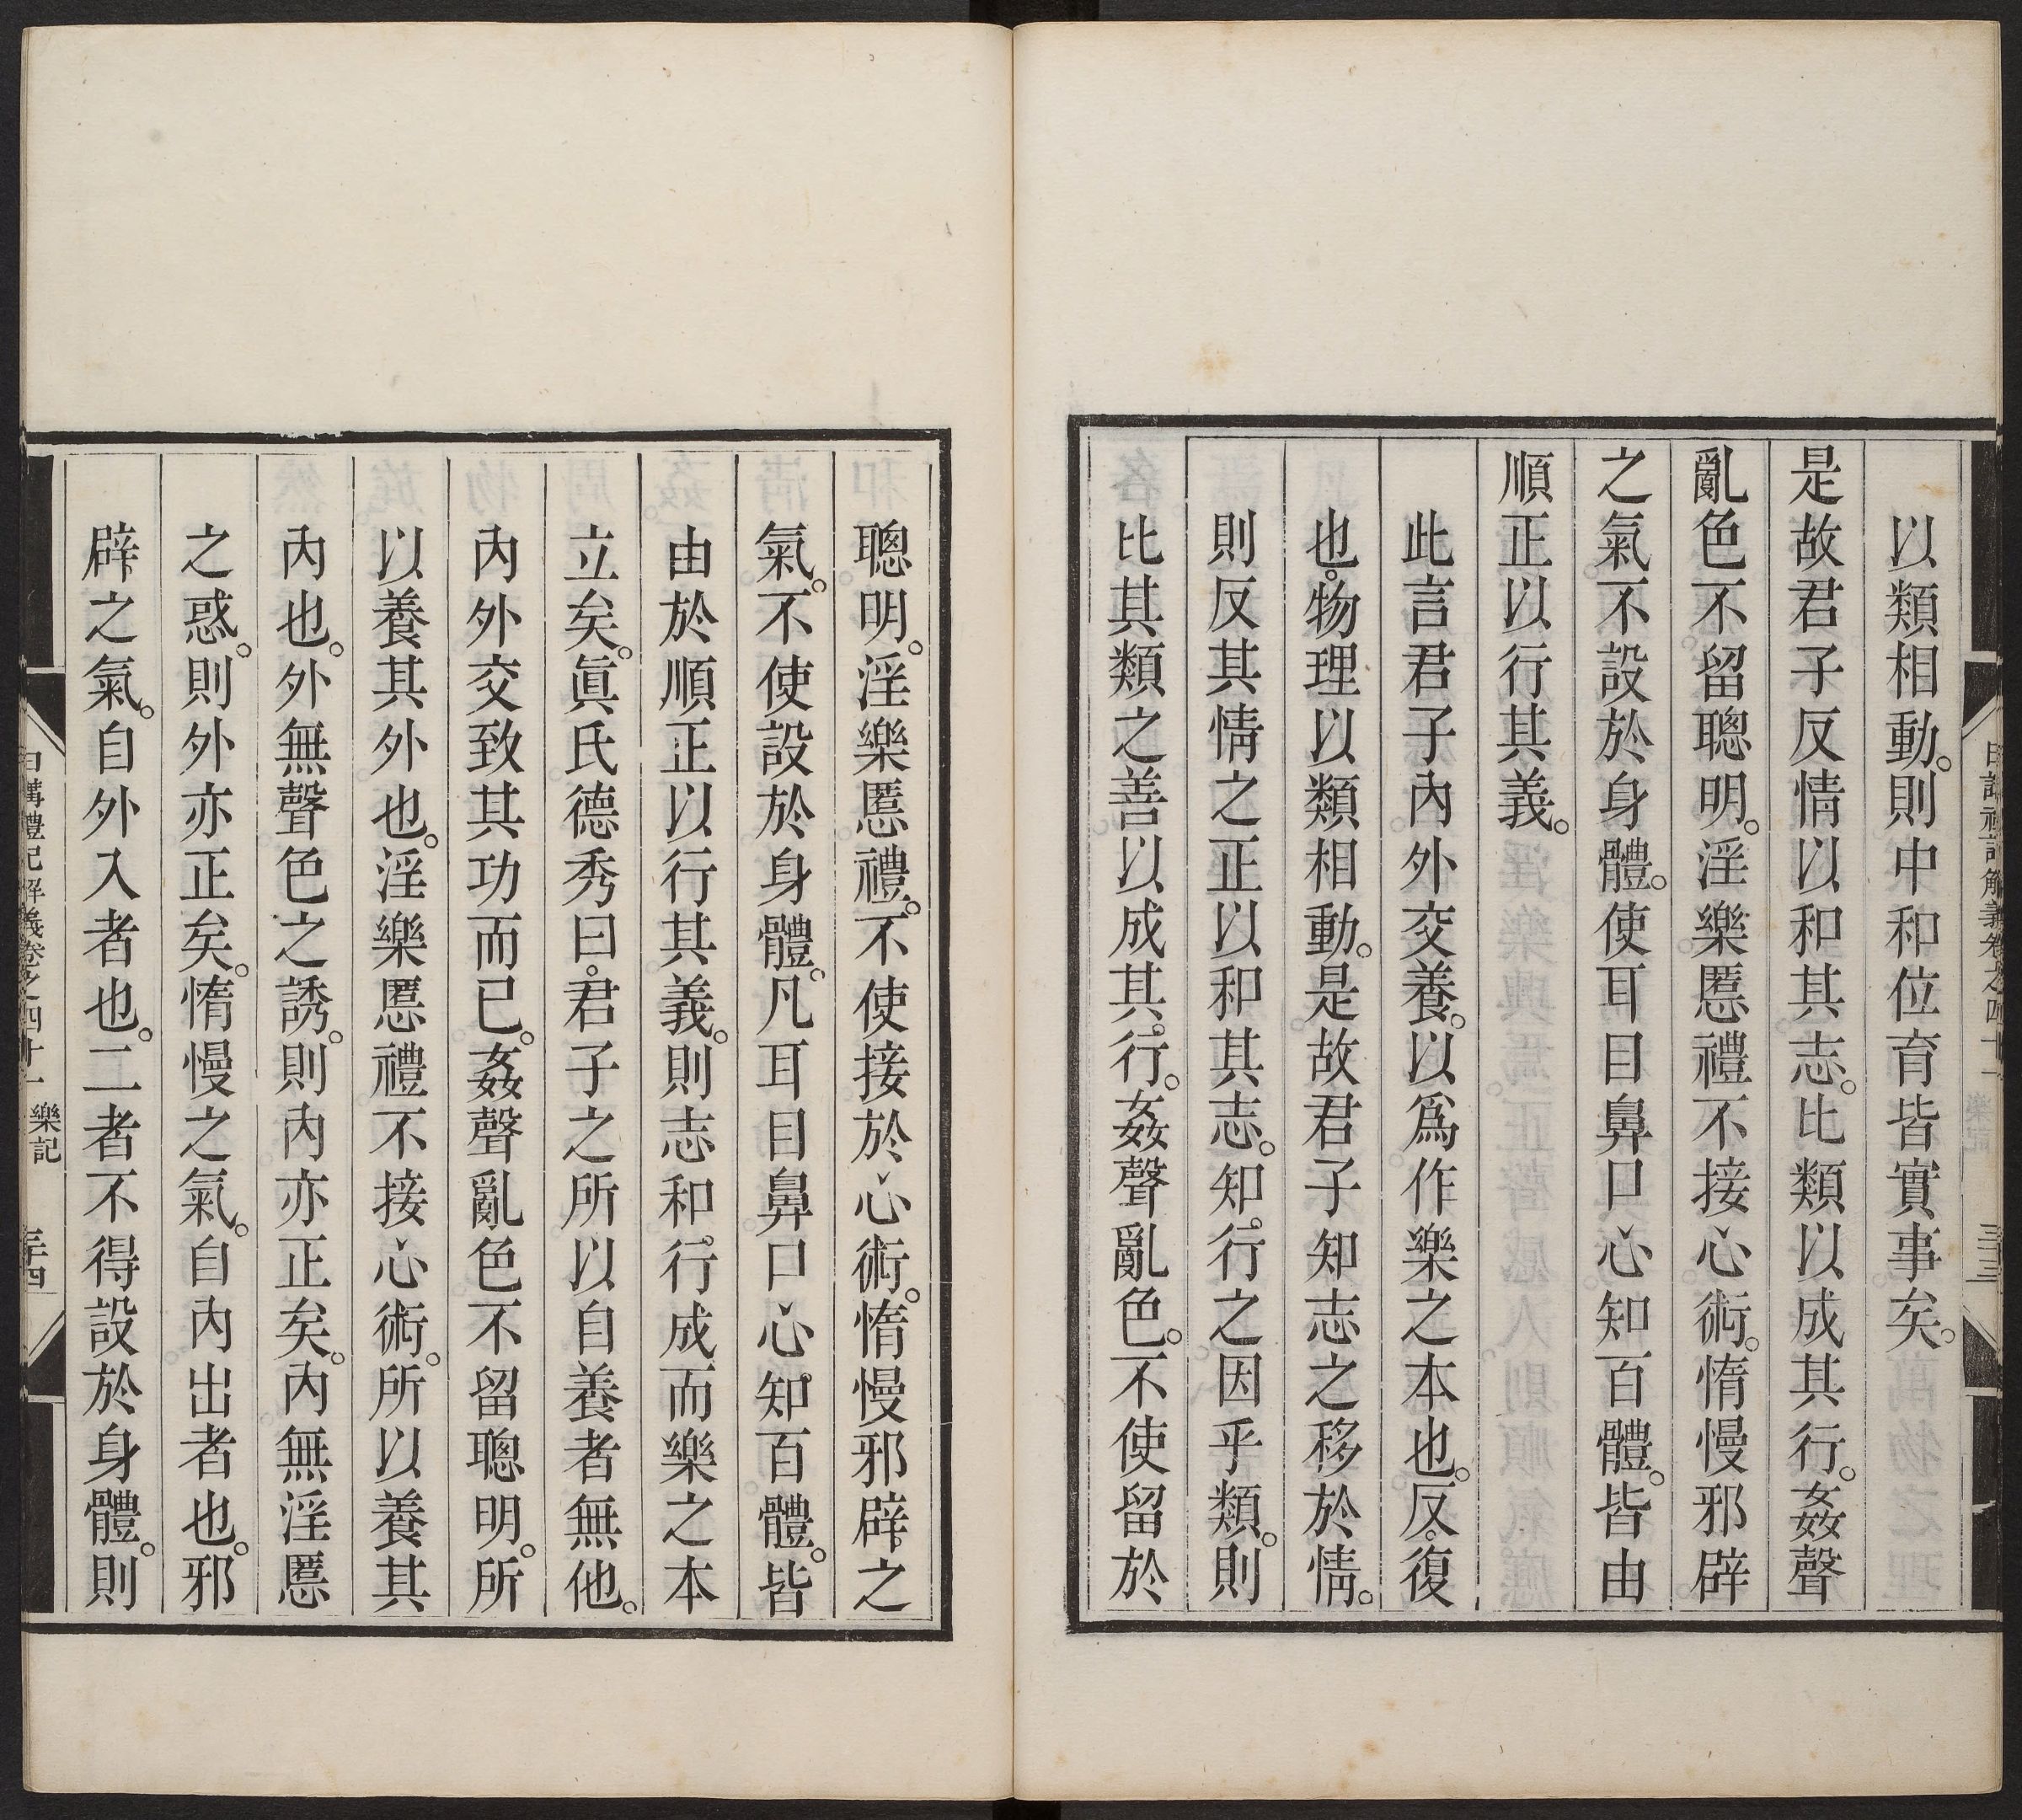 以類相動。則中和位育皆實事矣。
是故君子反情以和其志。比類以成其行。姦聲
亂色不留聰明。淫樂慝禮不接心術。惰慢邪辟
之氣不設於身體。使耳目鼻口心知百體。皆由
順正以行其義。
此言君子內外交養。以爲作樂之本也。反復
也。物理以類相動。是故君子知志之移於情。
則反其情之正以和其志。知行之因乎類。則
比其類之善以成其行。姦聲亂色。不使留於
日講禮記解義卷之四十一 樂記 三十三
聰明。淫樂慝禮。不使接於心術。惰慢邪辟之
氣。不使設於身體。凡耳目鼻口心知百體。皆
由於順正以行其義。則志和行成而樂之本
立矣。眞氏德秀曰。君子之所以自養者無他。
內外交致其功而已。姦聲亂色不留聰明。所
以養其外也。淫樂慝禮不接心術。所以養其
內也。外無聲色之誘。則內亦正矣。內無淫慝
之惑。則外亦正矣。惰慢之氣。自內出者也。邪
辟之氣。自外入者也。二者不得設於身體。則
日講禮記解義卷之四十一 樂記 三十四